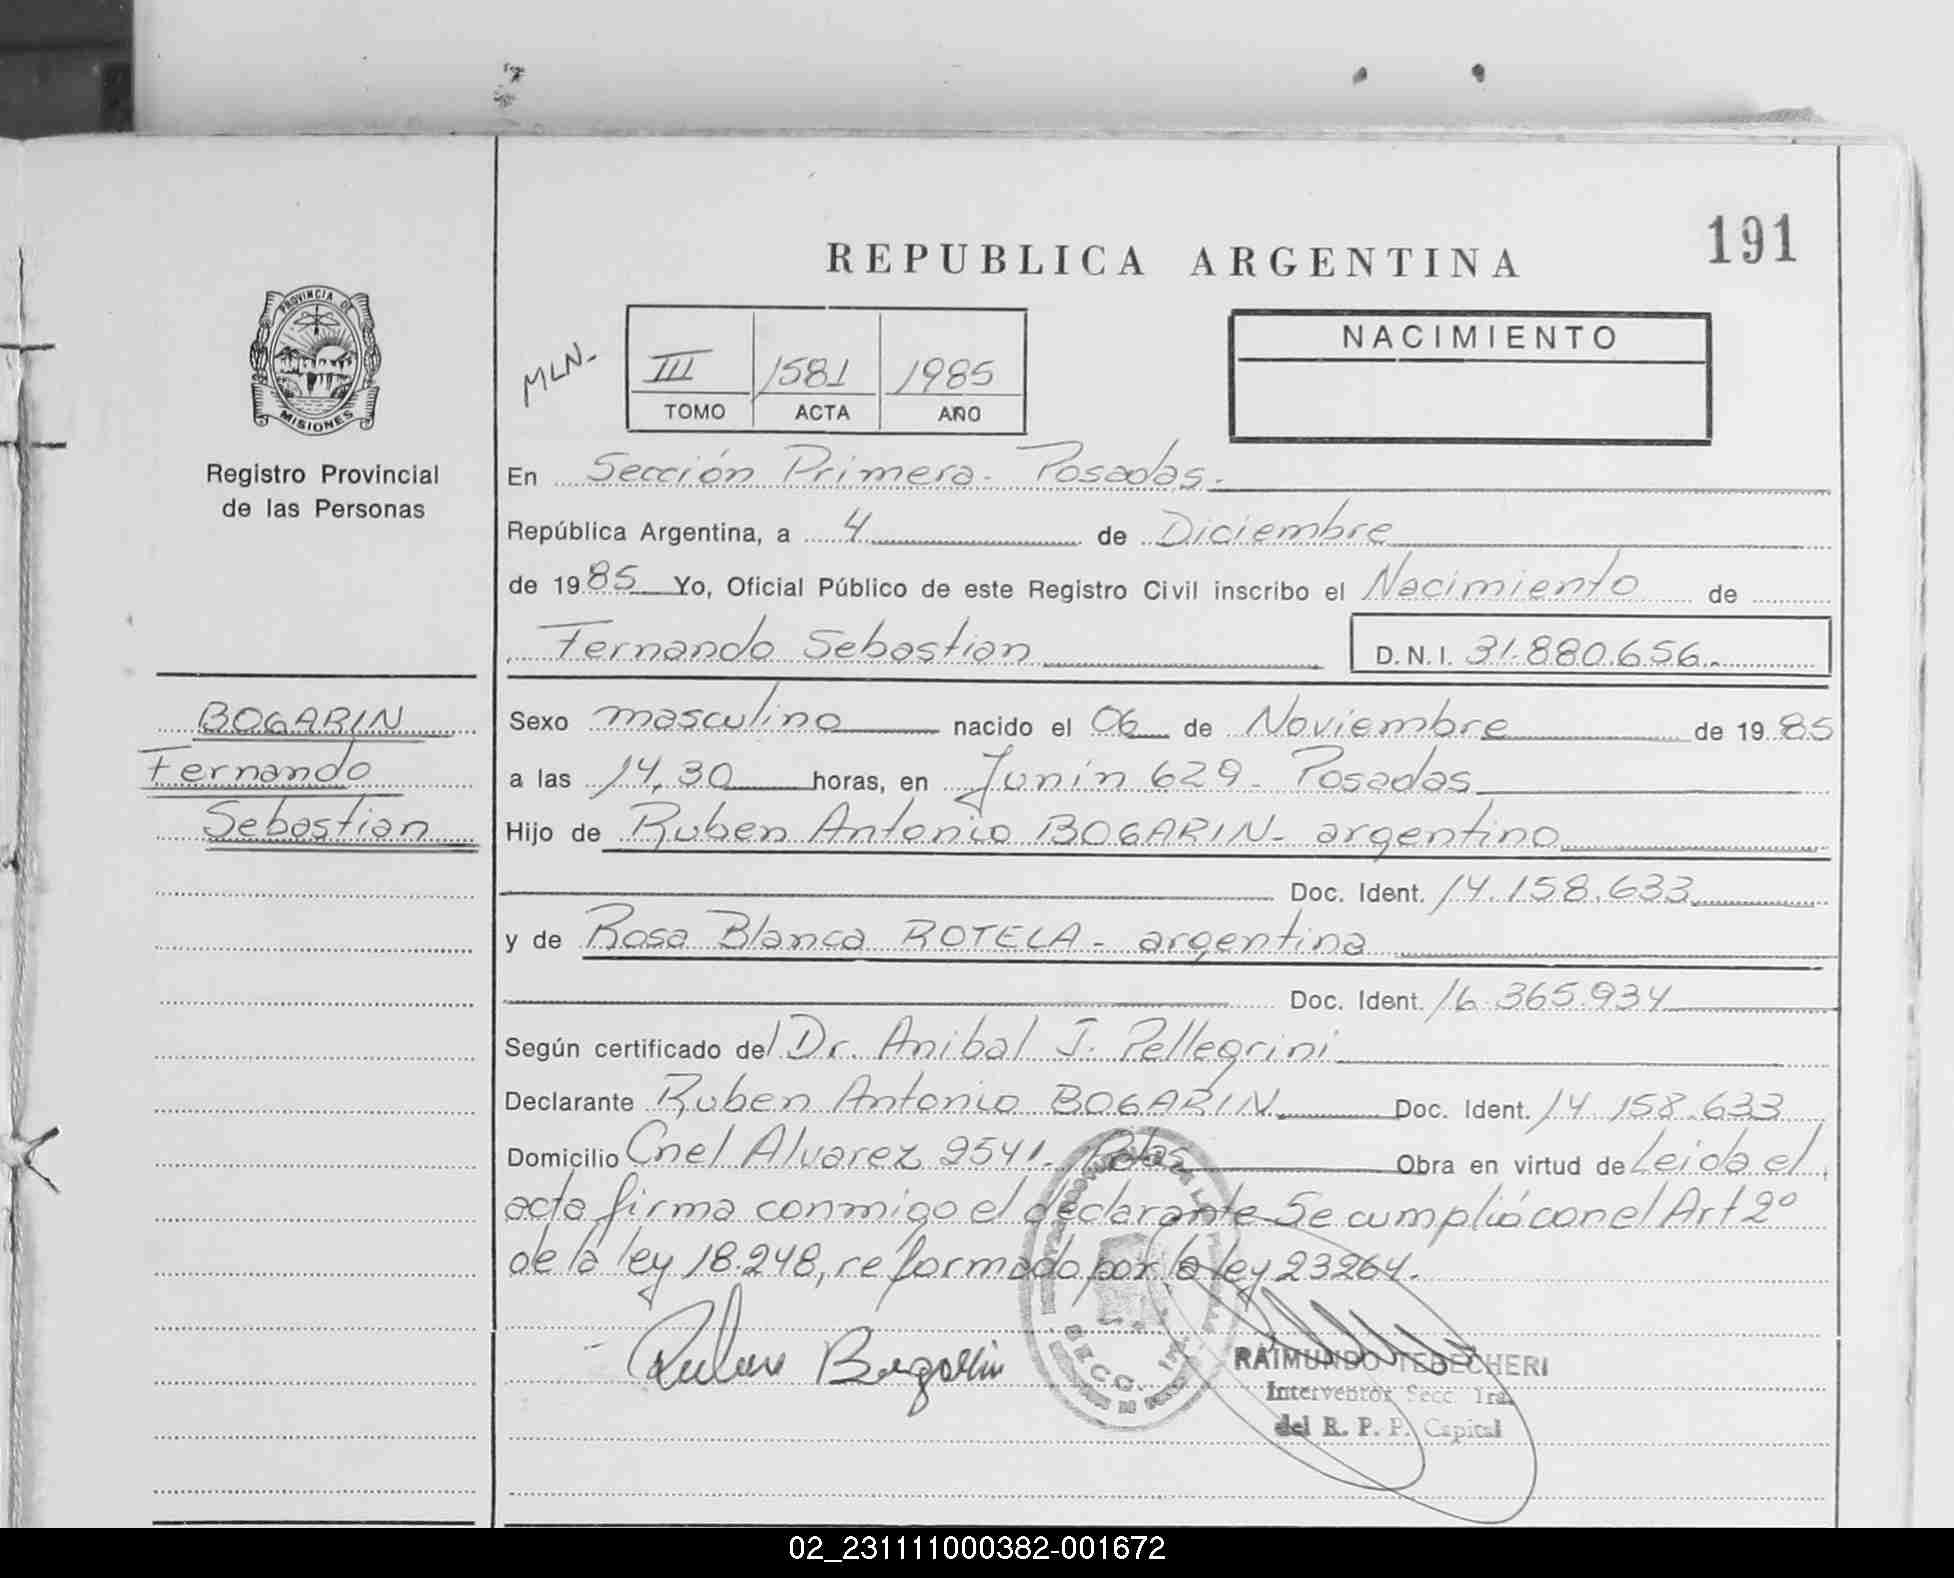 REPUBLICA ARGENTINA
191
PROVINCIA DE
MISIONES
Registro Provincial
de las Personas
MLN.-
III 1581 1985
TOMO ACTA AÑO
NACIMIENTO
En Sección Primera - Posadas.-
República Argentina, a 4 de Diciembre
de 1985 Yo, Oficial Público de este Registro Civil inscribo el Nacimiento de
Fernando Sebastian
D.N.I. 31.880.656.-
BOGARIN
Fernando
Sebastian
Sexo masculino nacido el 06 de Noviembre de 1985
a las 14,30 horas, en Junín 629 - Posadas
Hijo de Ruben Antonio BOGARIN - argentino
Doc. Ident. 14.158.633
y de Rosa Blanca ROTELA - argentina
Doc. Ident. 16.365.934
Según certificado del Dr. Anibal J. Pellegrini
Declarante Ruben Antonio BOGARIN Doc. Ident. 14 158.633
Domicilio Cnel Alvarez 2541 - Pdas Obra en virtud de Leida el
acta firma conmigo el declarante Se cumplió con el Art 2º
de la ley 18.248, reformado por la ley 23264.
Ruben Bogarin
SECC. 1ra.
RAIMUNDO TEBECHERI
Interventor Secc. 1ra.
del R. P. P. Capital
02_231111000382-001672